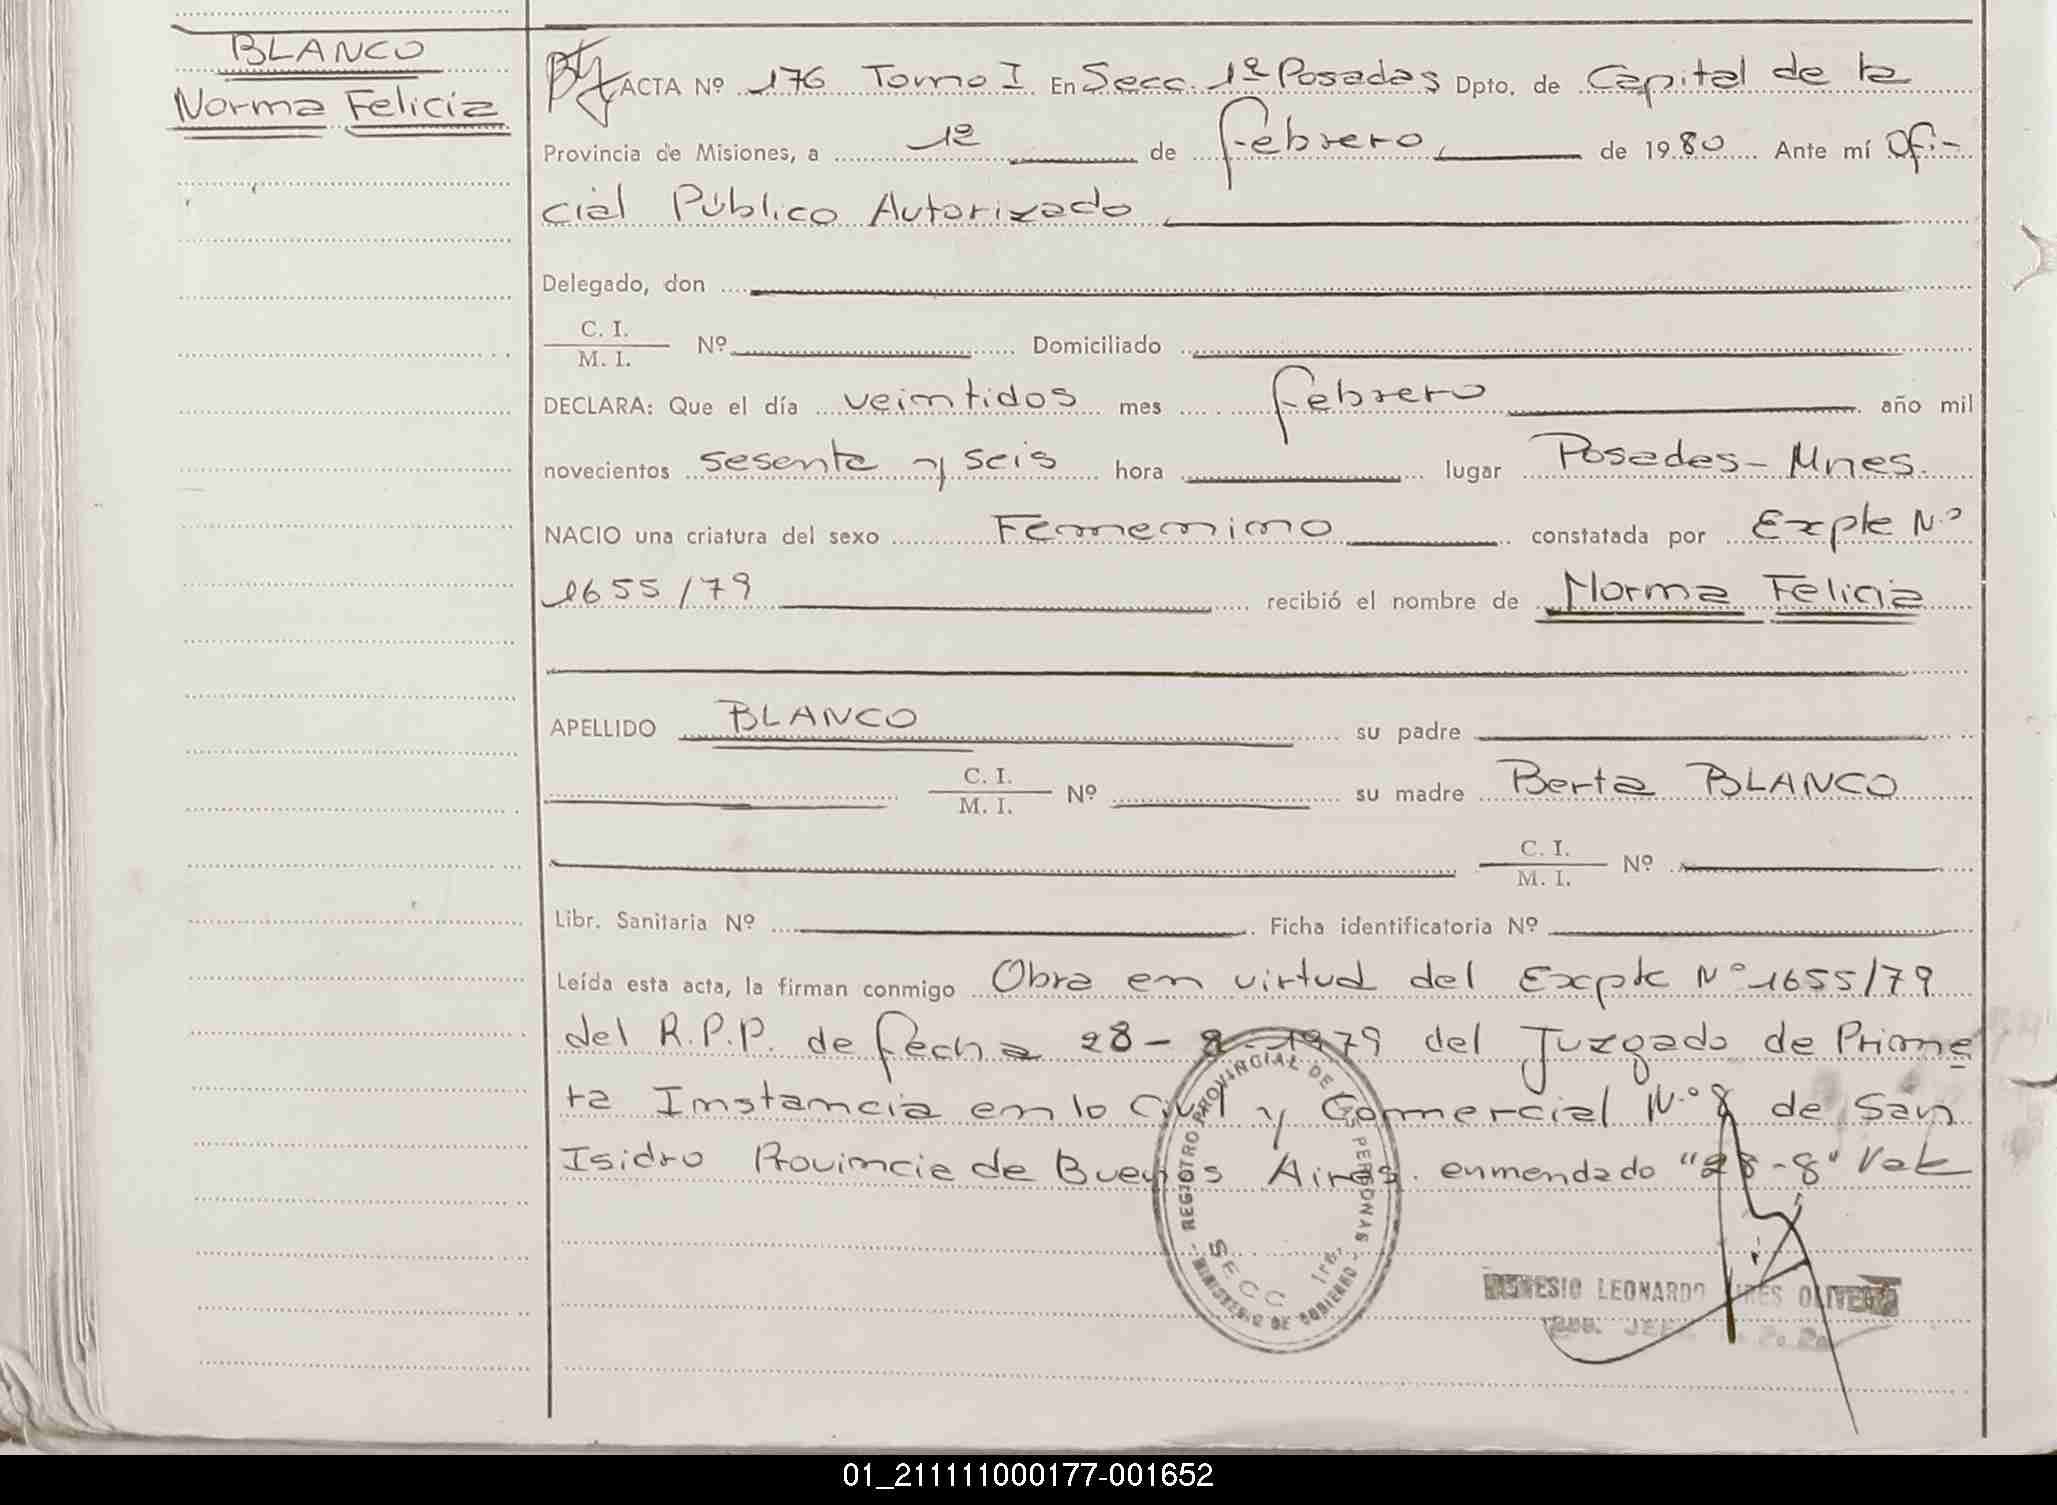 BLANCO
Norma Felicia
ACTA Nº 176 Tomo I En Secc. 1º Posadas Dpto. de Capital de la
Provincia de Misiones, a 1º de febrero de 1980 Ante mí Ofi-
cial Público Autorizado
Delegado, don
C. I.
M. I. Nº Domiciliado
DECLARA: Que el día veintidos mes febrero año mil
novecientos sesenta y seis hora lugar Posadas - Mnes.
NACIO una criatura del sexo Femenino constatada por Expte Nº
1655/79 recibió el nombre de Norma Felicia
APELLIDO BLANCO su padre
C. I.
M. I. Nº su madre Berta BLANCO
C. I.
M. I. Nº
Libr. Sanitaria Nº Ficha identificatoria Nº
Leída esta acta, la firman conmigo Obra en virtud del Expte Nº 1655/79
del R.P.P. de fecha 28-8-1979 del Juzgado de Prime
ra Instancia en lo Civil y Commercial N.º 8 de San
Isidro Provincia de Buenos Aires. enmendado "28-8" Vale
REGISTRO PROVINCIAL DE LAS PERSONAS
SECC 1ra.
MINISTERIO DE GOBIERNO
LEONARDO
01_211111000177-001652